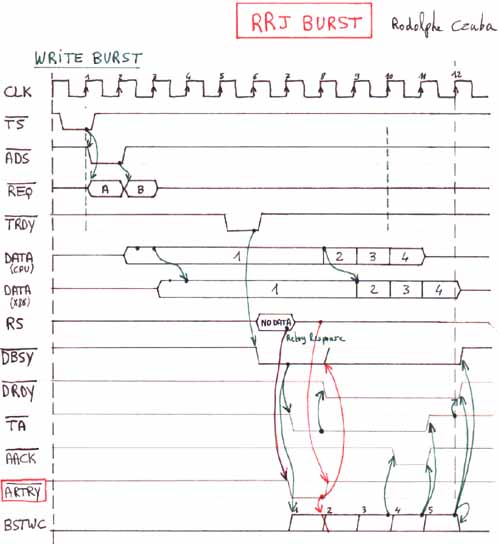 RRJ BURST
Rodolphe Czuba
WRITE BURST
CLK
1 2 3 4 5 6 7 8 9 10 11 12
TS
ADS
REQ A B
TRDY
DATA 1 2 3 4
(CPU)
DATA 1 2 3 4
RS NO DATA
Retry Response
DBSY
DRDY
TA
AACK
ARTRY
BSTWC 1 2 3 4 5